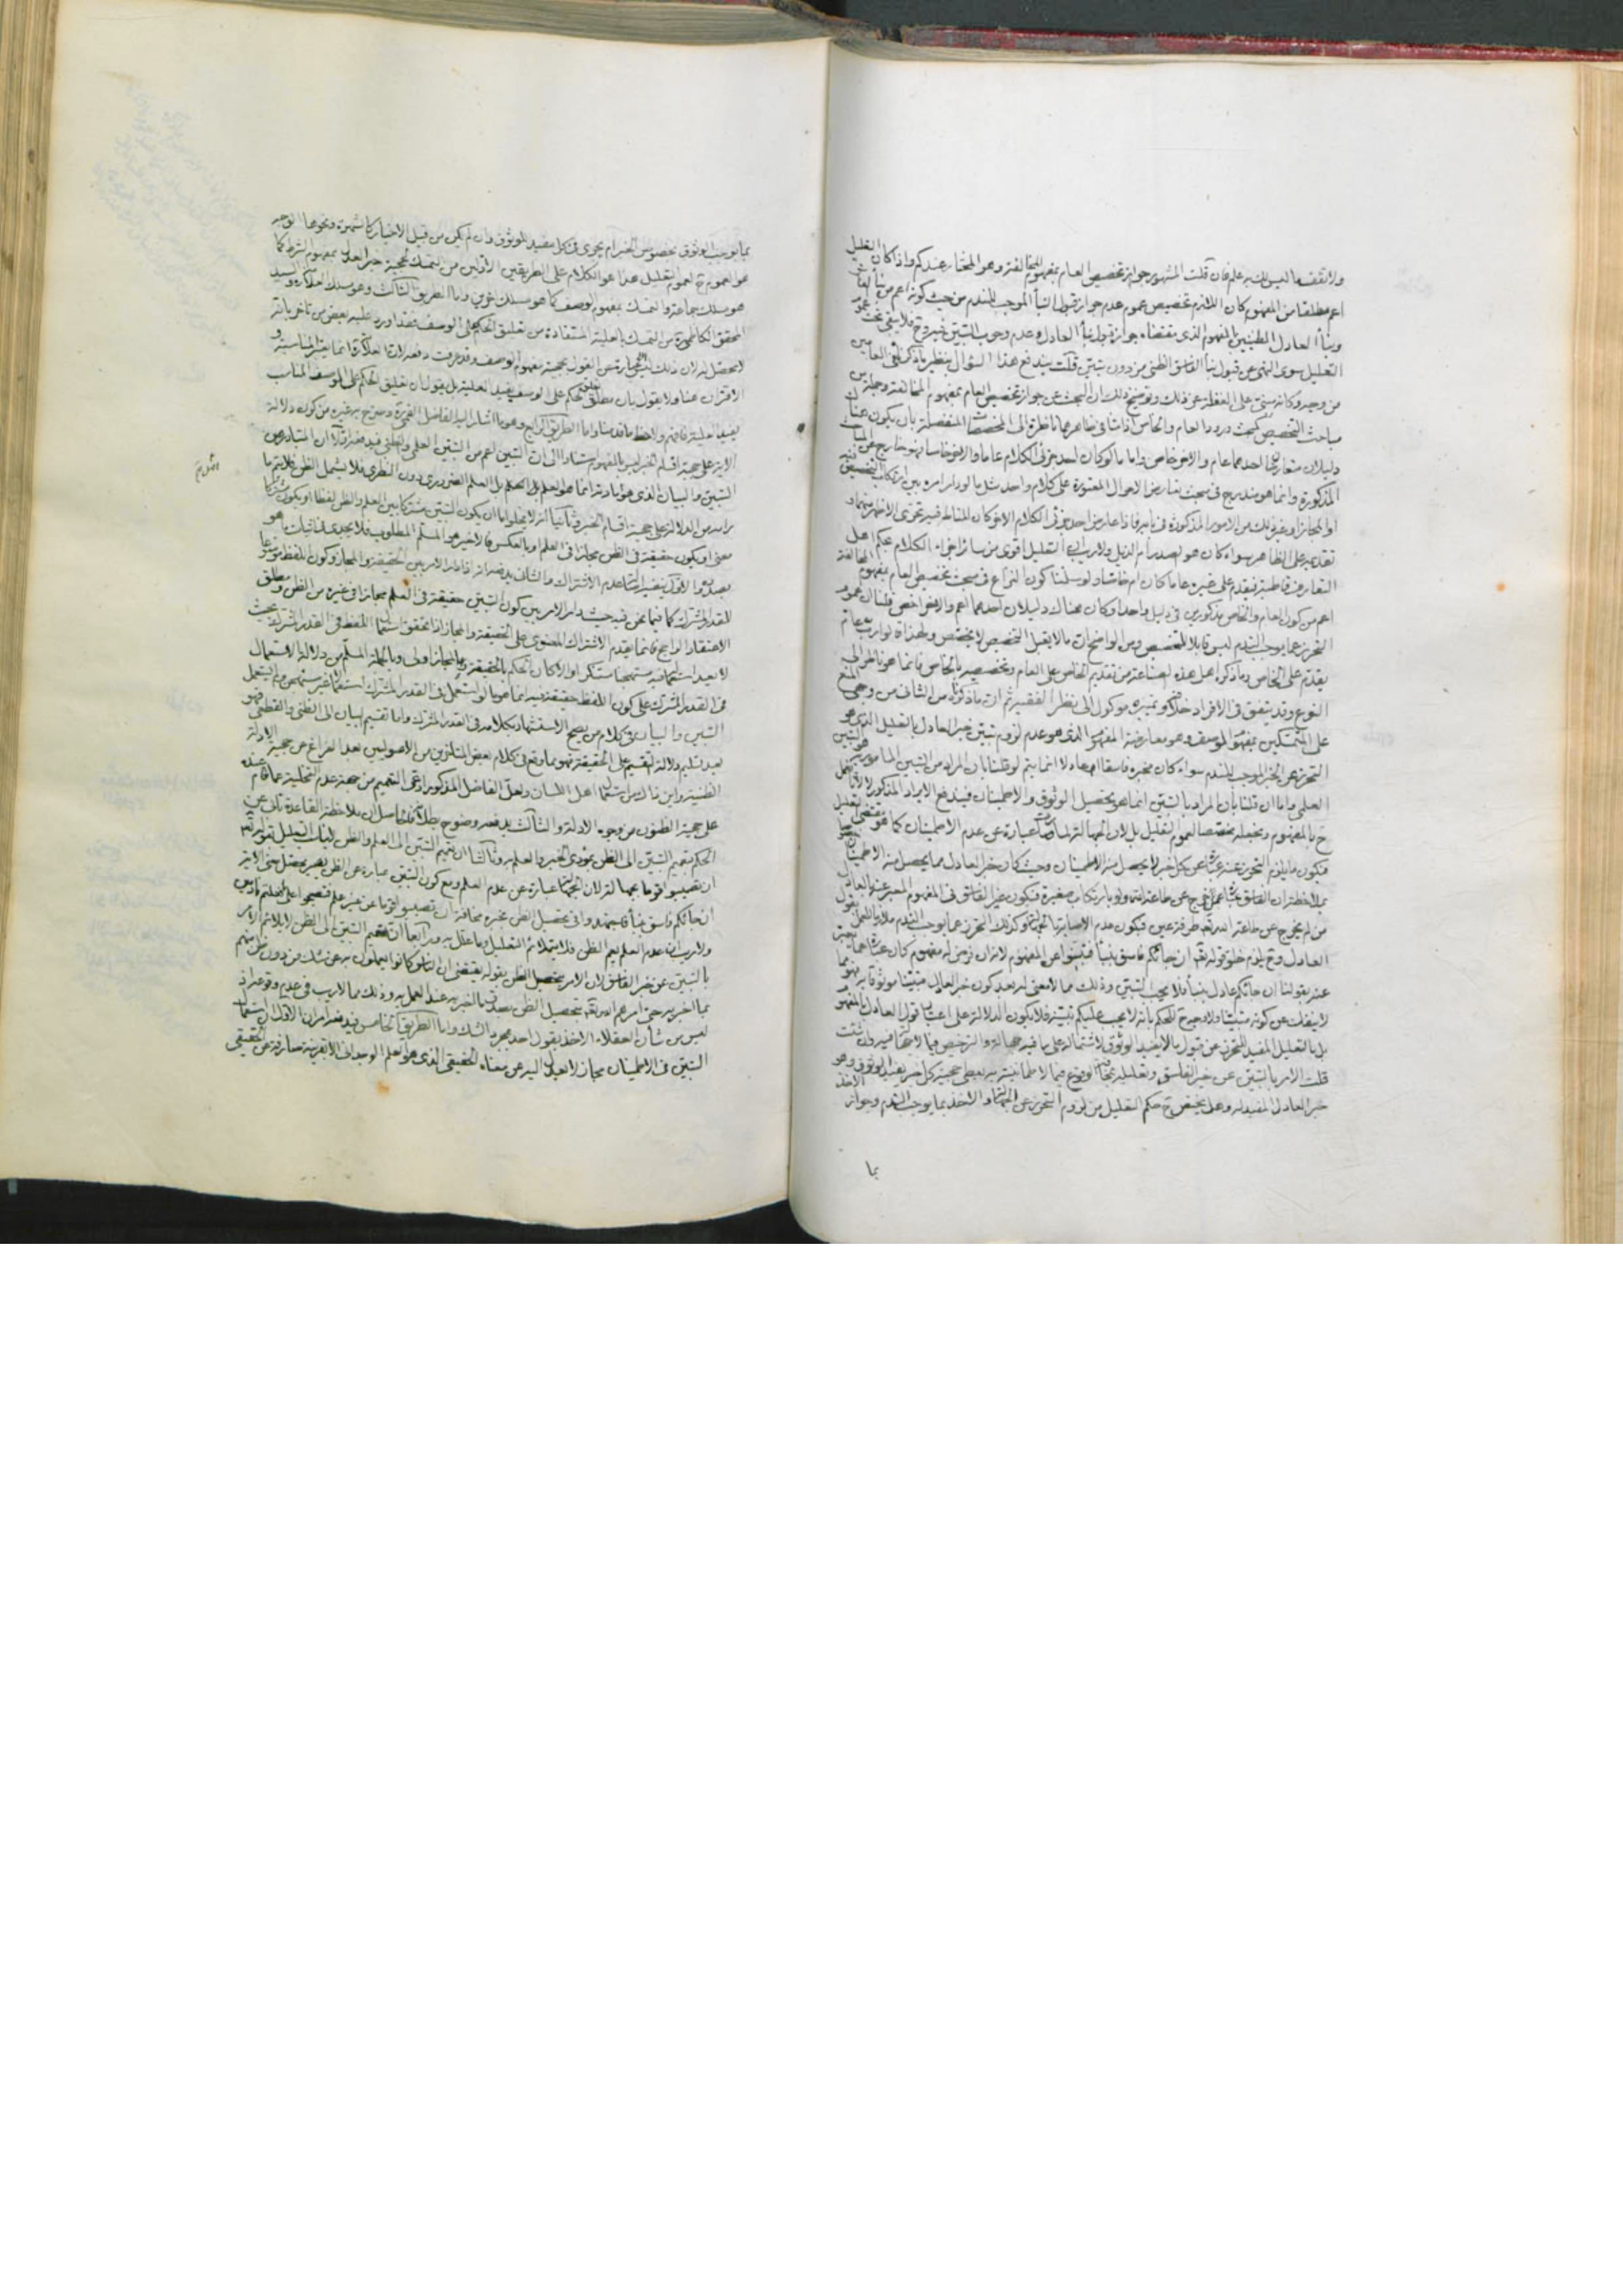 ولا تقف ما ليس لك به علم فان قلت المشهور جواز تخصيص العام بمفهوم المخالفة وهو المختار عندكم واذا كان التعليل
اعم مطلقا من المفهوم كان اللازم تخصيص عموم عدم جواز قبول النبأ الموجب للتندم من حيث كونه اعم من نبأ الفاسق
ونبأ العادل بالمفهوم الذى مقتضاه جواز قبول نبأ العادل وعدم وجوب التبين فيه وح فلا يبقى تحت عموم
التعليل سوى النهى عن قبول نبأ الفاسق الظنى من دون تبين قلت يندفع هذا السؤال بنظير ما ذكر فى العامين
من وجه وكانه مبنى على الغفلة عن ذلك وتوضيح ذلك ان البحث عن جواز تخصيص العام بمفهوم المخالفة وجملة من
مباحث التخصيص كمبحث ورود العام والخاص ناظرة الى المخصصات المنفصلة بان يكون هناك
دليلان متعارضان احدهما عام والاخر خاص واما ما لو كان احد جزئى الكلام عاما والاخر خاصا فهو خارج عن المباحث
المذكورة وانما هو مندرج فى مبحث تعارض الاحوال المعتورة على كلام واحد مثل ما لو دار امره بين ارتكاب التخصيص فيه
او المجاز او غير ذلك من الامور المذكورة فى بابه فاذا عارض احد جزئى الكلام الاخر كان المناط فيه تحرى الاظهر منهما و
تقديمه على الظاهر سواء كان هو الصدر ام الذيل ولا ريب ان التعليل اقوى من سائر اجزاء الكلام بحكم اهل
التعارف قاطبة فيقدم على غيره عاما كان ام خاصا ولو سلمنا كون النزاع فى مبحث تخصيص العام بمفهوم المخالفة
اعم من كون العام والخاص مذكورين فى دليل واحد او كان هناك دليلان احدهما اعم والاخر اخص قلنا ان عموم
التحرز عما يوجب التندم ليس قابلا للتخصيص ومن الواضح ان ما لا يقبل التخصيص لا يختص ولهذا قالوا رب عام
يقدم على الخاص وما ذكره اهل هذه الصناعة من تقديم الخاص على العام وتخصيصه بالخاص فانما هو ناظر الى
النوع وقد يتفق فى الافراد خلافه وتميزه موكول الى نظر الفقيه ثم ان ما ذكرناه من الثانى من وجهى المنع
على المتمسكين بمفهوم الوصف وهو معارضة المفهوم الذى هو عدم لزوم تبين خبر العادل بالتعليل الذى هو
التحرز عن الخبر الموجب للتندم سواء كان مخبره فاسقا ام عادلا انما يتم لو قلنا بان المراد من التبين المأمور به هو التبين
العلمى واما ان قلنا بان المراد بالتبين انما هو تحصيل الوثوق والاطمينان فيندفع الايراد المذكور لانا نعمل
ح بالمفهوم ونجعله مخصصا لعموم التعليل بل لان الجهالة عبارة عن عدم الاطمينان كما هو مقتضى التعليل
فيكون ما يلزم التحرز عنه عبارة عن كل خبر لا يحصل منه الاطمينان وحيث كان خبر العادل مما يحصل منه الاطمينان
بملاحظة ان الفاسق عبارة عمن خرج عن طاعة الله ولو بارتكاب صغيرة فيكون غير الفاسق فى المفهوم المعبر عنه بالعادل
من لم يخرج عن طاعة الله تعالى طرفة عين فيكون عدم الاصابة بالجهالة وكذلك التحرز عما يوجب التندم ملازما للعمل بقول
العادل وح يلزم خلو قوله تعالى ان جائكم فاسق بنبأ فتبينوا عن المفهوم لانه ان فرض له مفهوم كان عبارة عما يعبر
عنه بقولنا ان جائكم عادل بنبأ فلا يجب التبين وذلك مما لا معنى له بعد كون خبر العادل متبينا موثوقا به فهو مما
لا ينفك عن كونه متبينا ولا وجه ح للحكم بانه لا يجب عليكم تبينه فلا يكون الدلالة على اعتبار قول العادل بالمفهوم
بل بالتعليل المفيد للتحرز عن قبول ما لا يفيد الوثوق لاشتماله على ما فيه جهالة والترخيص فيما لا جهالة فيه وان شئت
قلت الامر بالتبين عن خبر الفاسق وتعليله بمخافة الوقوع فيما لا طمانينة به يعطى حجية كل خبر يفيد الوثوق وهو
خبر العادل المفيد له وهل يختص ح حكم التعليل من لزوم التحرز عن الجهالة او الاخذ بما يوجب التندم وجواز الاخذ
بما
بما يوجب الوثوق بخصوص الخبر ام يجرى فى كل مفيد للوثوق وان لم يكن من قبيل الاخبار كالشهرة ونحوها الوجه
هو العموم ح لعموم التعليل هذا هو الكلام على الطريقين الاولين من التمسك لحجية خبر العدل بمفهوم الشرط كما
هو مسلك جماعة والتمسك بمفهوم الوصف كما هو مسلك اخرين واما الطريق الثالث وهو مسلك العلامة والسيد
المحقق الكاظمى من التمسك بالعلية المستفادة من تعليق الحكم على الوصف فقد اورد عليه بعض من تاخر بانه
لا يحصل له لان ذلك القول بحجية مفهوم الوصف وقد عرفت دفعه لان العلامة انما يعتبر المناسبة و
الاقتران هنا ولا يقول بان مطلق تعليق الحكم على الوصف يفيد العلية بل يقول ان تعليق الحكم على الوصف المناسب
يفيد العلية فافهم ولاحظ ما قدمنا واما الطريق الرابع وهو ما اشار اليه الفاضل القمى وصرح به غيره من كون دلالة
الاية على حجية اقسام الخبر ليس بالمفهوم استنادا الى ان التبين اعم من التبين العلمى والظنى ففيه اولا ان المتبادر من
التبين والبيان الذى هو مادته انما هو العلم بل العلم الضرورى دون النظرى فلا يشمل الظن فلا يتم ما
رامه من الدلالة على حجية اقسام الخبر وثانيا انه لا يخلو اما ان يكون التبين مشتركا بين العلم والظن لفظا او يكون مشتركا
معنى او يكون حقيقة فى الظن مجازا فى العلم او بالعكس فالاخير هو المسلم المطلوب فلا يجدى فى اثبات ما هو
بصدده والاول ينفيه اصالة عدم الاشتراك والثانى يدفعه انه اذا دار الامر بين الحقيقة والمجاز وكون اللفظ موضوعا
للقدر المشترك كما فيما نحن فيه حيث دار الامر بين كون التبين حقيقة فى العلم مجازا فى غيره من الظن ومطلق
الاعتقاد الراجح فانما يقدم الاشتراك المعنوى على الحقيقة والمجاز اذا تحقق استعمال اللفظ فى القدر المشترك بحيث
لا يعد استعماله فيه مستهجنا مستنكرا والا كان الحكم بالحقيقة والمجاز اولى وبالجملة المسلم من دلالة الاستعمال
فى القدر المشترك على كون اللفظ حقيقة فيه انما هو ما لو استعمل فى القدر المشترك استعمالا غير مستهجن ولم يستعمل
التبين والبيان فى كلام من يصح الاستشهاد بكلامه فى القدر المشترك واما تقسيم البيان الى الظنى والقطعى فهو
بعد تسليم دلالة التقسيم على الحقيقة فهو مما وقع فى كلام بعض المتاخرين من الاصوليين بعد الفراغ عن حجية الادلة
الظنية واين ذاك من استعمال اهل اللسان ولعل الفاضل المذكور ادعى التعميم من جهة عدم التخلية عما قام عنده
على حجية الظنون من وجوه الادلة والثالث يدفعه وضوح بطلانه فالحاصل ان ملاحظة القاعدة تابى عن
الحكم بتعميم التبين الى الظن بمؤدى الخبر والعلم به وثالثا ان تعميم التبين الى العلم والظن ينافيه التعليل بقوله تعالى
ان تصيبوا قوما بجهالة لان الجهالة عبارة عن عدم العلم ومع كون التبين عبارة عن الظن يصير محصل معنى الاية
ان جائكم فاسق بنبأ فاجتهدوا فى تحصيل الظن بخبره مخافة ان تصيبوا قوما عن غير علم فتصبحوا على ما فعلتم نادمين
ولا ريب ان عدم العلم يعم الظن فلا يتلائم التعليل وما علل به ورابعا ان تعميم التبين الى الظن لا يلائم الامر
بالتبين عن خبر الفاسق لان الامر بتحصيل الظن بقوله يقتضى ان الناس كانوا يعملون به عن شك من دون ظن منهم
بما اخبر به حتى امرهم الله تعالى بتحصيل الظن بصدق ما اخبر به عند العمل به وذلك مما لا ريب فى عدم وقوعه اذ
ليس من شأن العقلاء الاخذ بقول احد بمجرد الشك واما الطريق الخامس ففيه امران الاول ان استعمال
التبين فى الاطمينان مجاز لا يعدل اليه عن معناه الحقيقى الذى هو العلم الوجدانى الا بقرينة صارفة عن الحقيقى